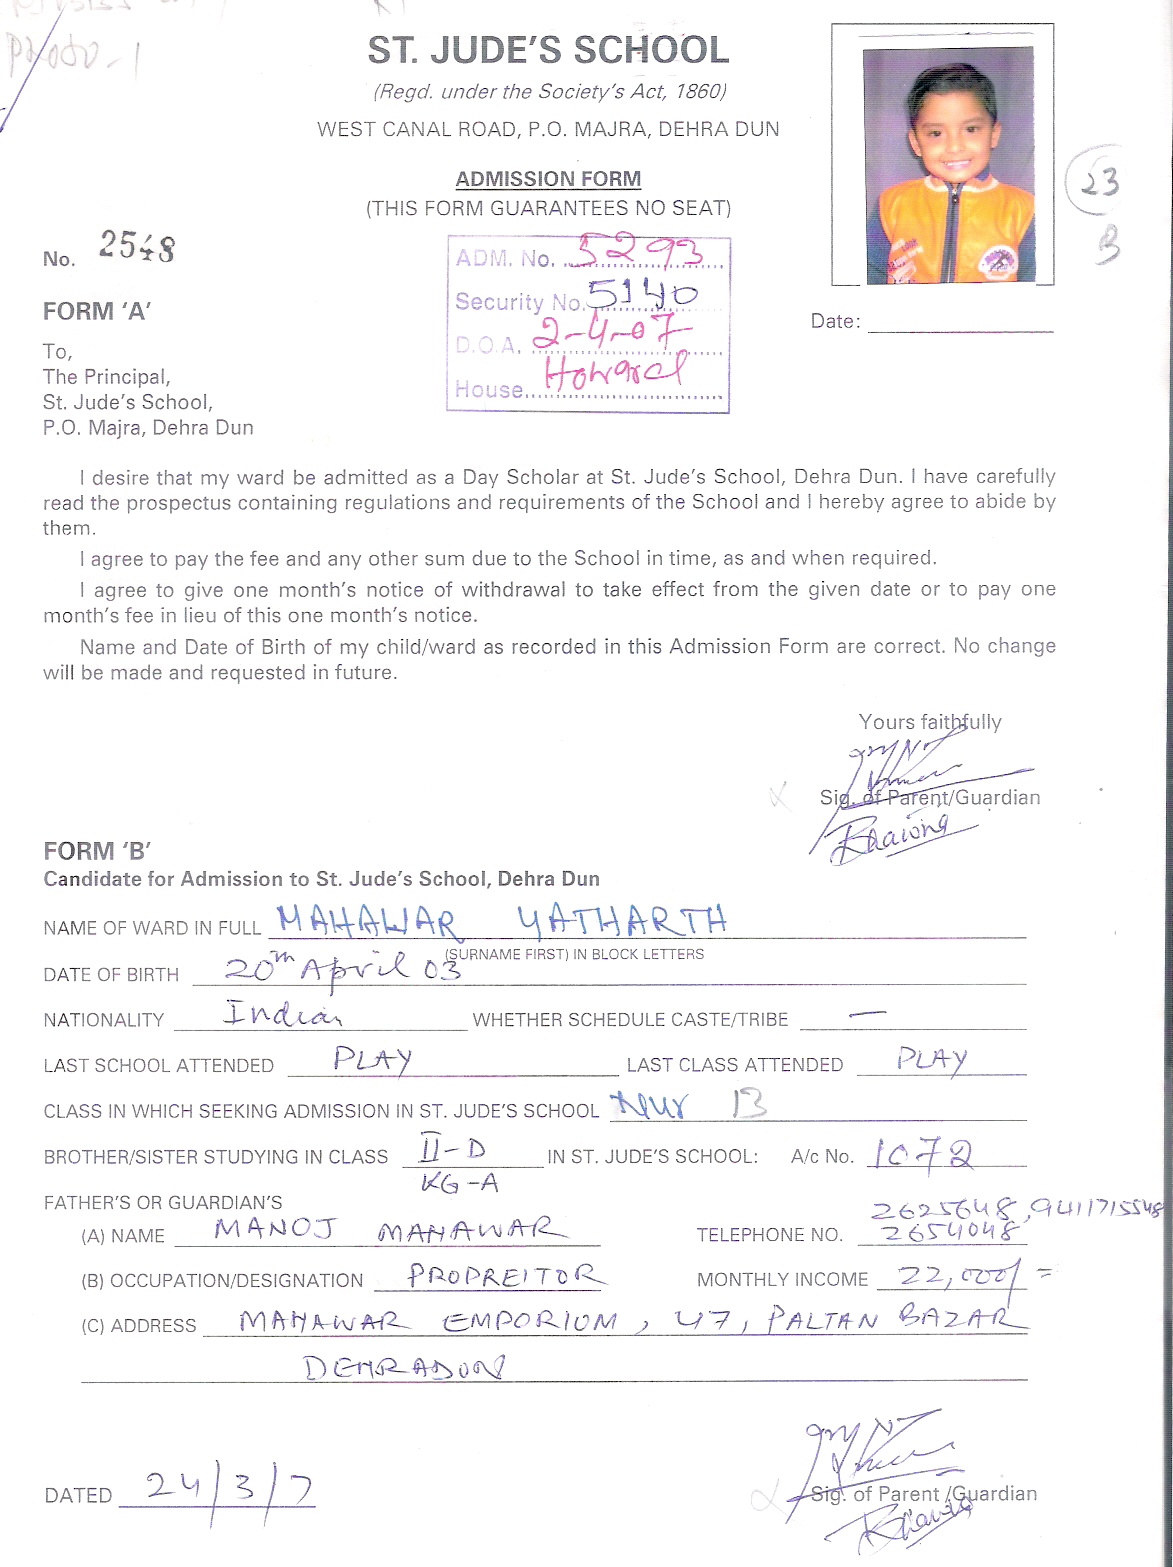 ST. JUDE'S SCHOOL
(Regd. under the Society's Act, 1860)
WEST CANAL ROAD, P.O. MAJRA, DEHRA DUN
ADMISSION FORM
(THIS FORM GUARANTEES NO SEAT)
23
B
No. 2548
ADM. No. 5293
Security No. 5140
D.O.A. 2-4-07
House Howard
FORM 'A'
Date:
To,
The Principal,
St. Jude's School,
P.O. Majra, Dehra Dun
I desire that my ward be admitted as a Day Scholar at St. Jude's School, Dehra Dun. I have carefully
read the prospectus containing regulations and requirements of the School and I hereby agree to abide by
them.
I agree to pay the fee and any other sum due to the School in time, as and when required.
I agree to give one month's notice of withdrawal to take effect from the given date or to pay one
month's fee in lieu of this one month's notice.
Name and Date of Birth of my child/ward as recorded in this Admission Form are correct. No change
will be made and requested in future.
Yours faithfully
Sig. of Parent/Guardian
FORM 'B'
Candidate for Admission to St. Jude's School, Dehra Dun
NAME OF WARD IN FULL MAHAWAR YATHARTH
(SURNAME FIRST) IN BLOCK LETTERS
DATE OF BIRTH 20th April 03
NATIONALITY Indian WHETHER SCHEDULE CASTE/TRIBE —
LAST SCHOOL ATTENDED PLAY LAST CLASS ATTENDED PLAY
CLASS IN WHICH SEEKING ADMISSION IN ST. JUDE'S SCHOOL Nur B
BROTHER/SISTER STUDYING IN CLASS II-D IN ST. JUDE'S SCHOOL: A/c No. 1072
KG-A
FATHER'S OR GUARDIAN'S 2625648, 9411715548
(A) NAME MANOJ MAHAWAR TELEPHONE NO. 2654048
(B) OCCUPATION/DESIGNATION PROPREITOR MONTHLY INCOME 22,000/=
(C) ADDRESS MAHAWAR EMPORIUM, 47, PALTAN BAZAR
DEHRADUN
DATED 24/3/7
Sig. of Parent/Guardian